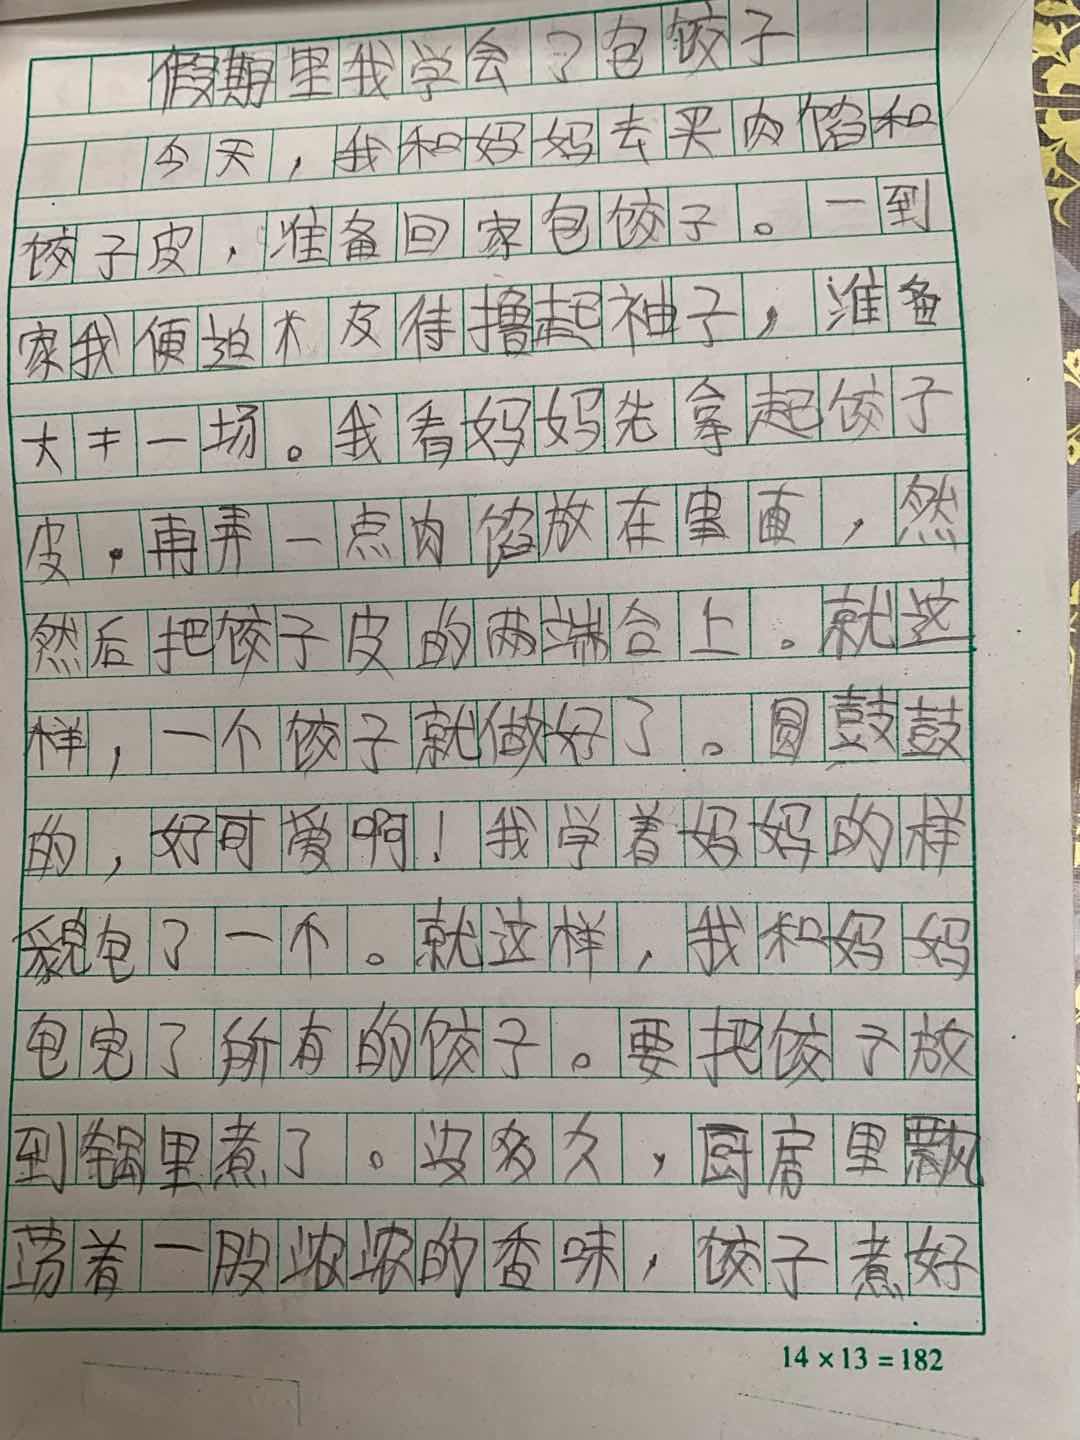 假期里我学会了包饺子
今天，我和妈妈去买肉馅和
饺子皮，准备回家包饺子。一到
家我便迫不及待撸起袖子，准备
大干一场。我看妈妈先拿起饺子
皮，再弄一点肉馅放在里面，然
然后把饺子皮的两端合上。就这
样，一个饺子就做好了。圆鼓鼓
的，好可爱啊！我学着妈妈的样
貌包了一个。就这样，我和妈妈
包完了所有的饺子。要把饺子放
到锅里煮了。没多久，厨房里飘
荡着一股浓浓的香味，饺子煮好
14×13=182